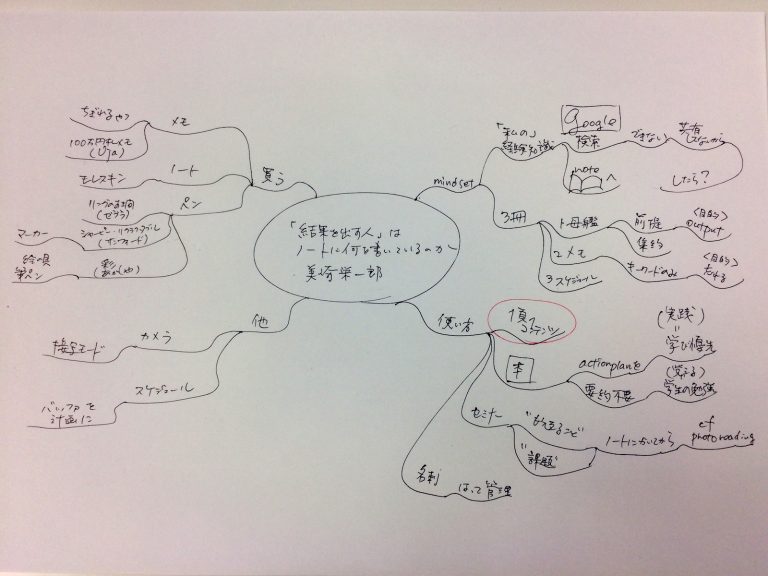 「結果を出す人」は
ノートに何を書いているのか
美崎栄一郎
mindset
「私の」
経験知識
Google
検索
note
へ
できない
共有
しないから
したら?
3冊
1 母艦
前提
集約
<目的>
output
2 メモ
キーワードのみ
<目的>
忘れる
3 スケジュール
使い方
1頁
1コンテンツ
本
actionplanを
(実践)
=
学び優先
要約不要
(覚える)
学生の勉強
セミナー
"役立ること"
"課題"
ノートにかいてから
cf
photoreading
名刺
はって管理
買う
メモ
ちぎれるやつ
100万円札メモ
ノート
モレスキン
ペン
(ゼブラ)
マーカー
シャーピー・リクラクタブル
(サンフォード)
絵の具
筆ペン
彩
(あかしや)
他
カメラ
接写モード
スケジュール
バッファを
計画に